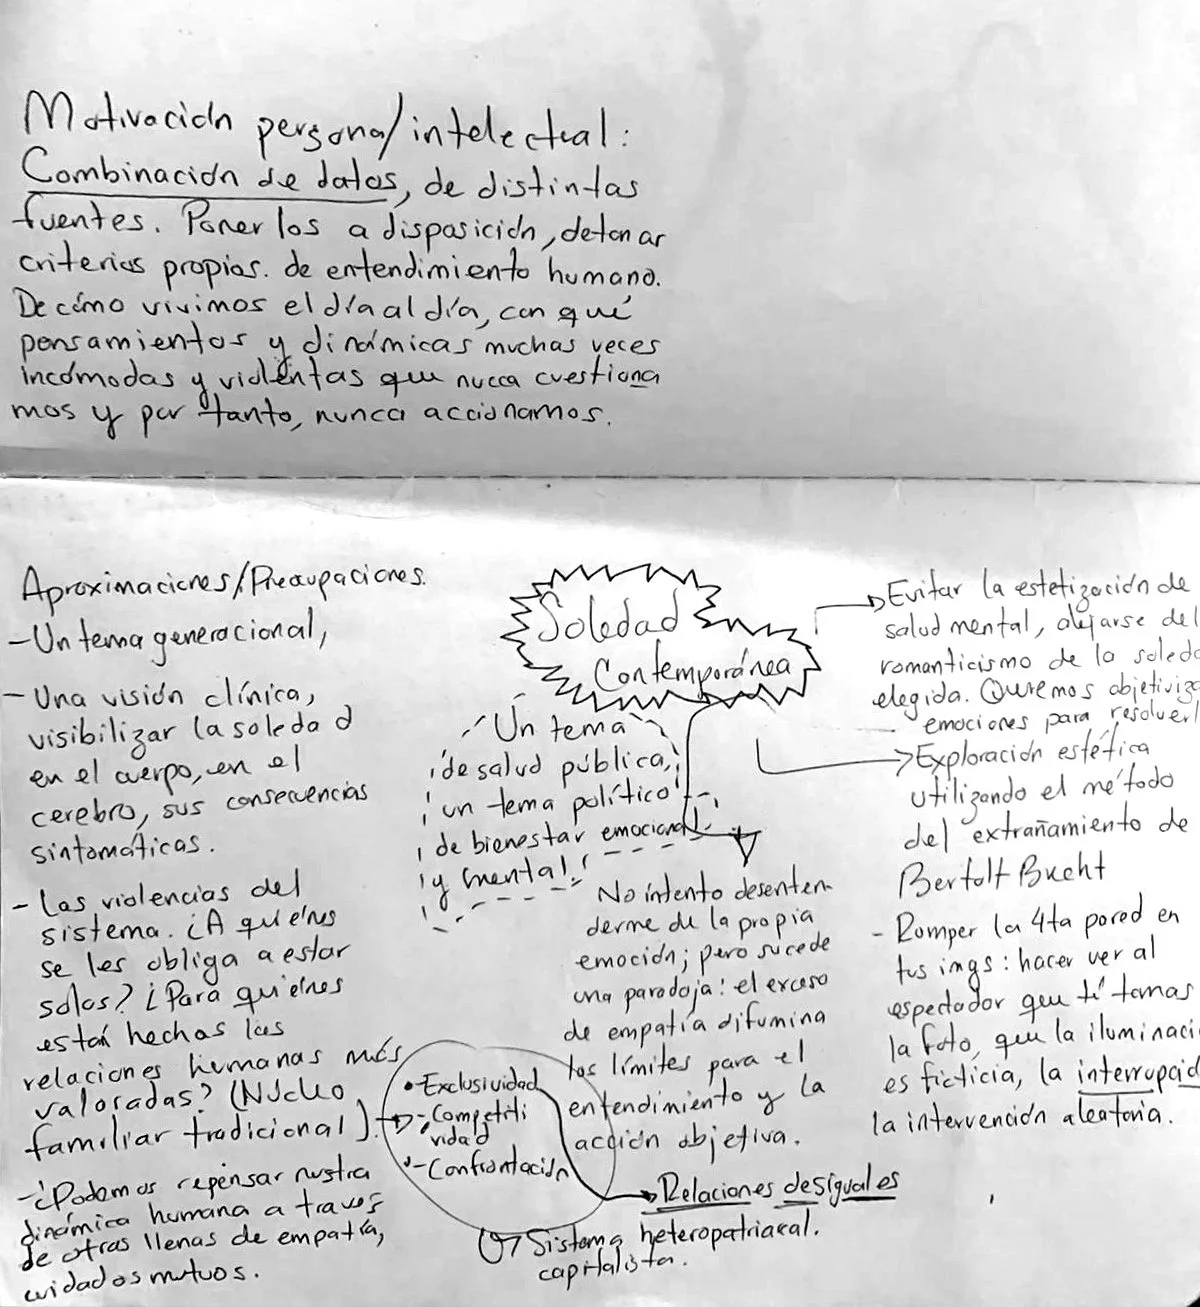 Motivación personal/intelectual:
Combinación de datos, de distintas
fuentes. Poner los a disposición, detonar
criterios propios. de entendimiento humano.
De cómo vivimos el día al día, con qué
pensamientos y dinámicas muchas veces
incómodas y violentas que nunca cuestiona
mos y por tanto, nunca accionamos.
Aproximaciones/Preocupaciones.
- Un tema generacional,
- Una visión clínica,
visibilizar la soledad
en el cuerpo, en el
cerebro, sus consecuencias
sintomáticas.
- Las violencias del
sistema. ¿A quiénes
se les obliga a estar
solos? ¿Para quiénes
están hechas las
relaciones humanas más
valoradas? (Núcleo
familiar tradicional).
- ¿Podemos repensar nuestra
dinámica humana a través
de otras llenas de empatía,
cuidados mutuos.
Soledad
Contemporánea
Un tema
de salud pública,
un tema político
de bienestar emocional
y mental!
No intento desenten-
derme de la propia
emoción; pero sucede
una paradoja: el exceso
de empatía difumina
los límites para el
entendimiento y la
acción objetiva.
• Exclusividad
- Competiti
vidad
- Confrontación
Relaciones desiguales
Sistema heteropatriarcal.
capitalista.
Evitar la estetización de
salud mental, alejarse del
romanticismo de la soleda
elegida. Queremos objetiviza
emociones para resolverl
Exploración estética
utilizando el método
del extrañamiento de
Bertolt Brecht
- Romper la 4ta pared en
tus imgs: hacer ver al
espectador que tú tomas
la foto, que la iluminaci
es ficticia, la interrupció
la intervención aleatoria.